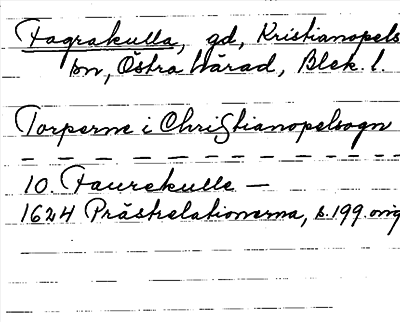 Fagrakulla, gd, Kristianopels
sn, Östra härad, Blek. l.
Torperne i Christianopelsogn
10. Faurekulle —
1624 Prästrelationerna, s. 199. orig